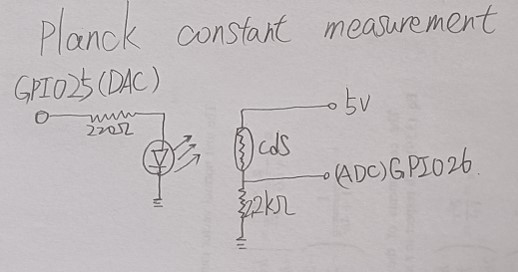 Planck constant measurement
GPIO25(DAC)
220Ω
5V
CdS
(ADC)GPIO26.
22kΩ